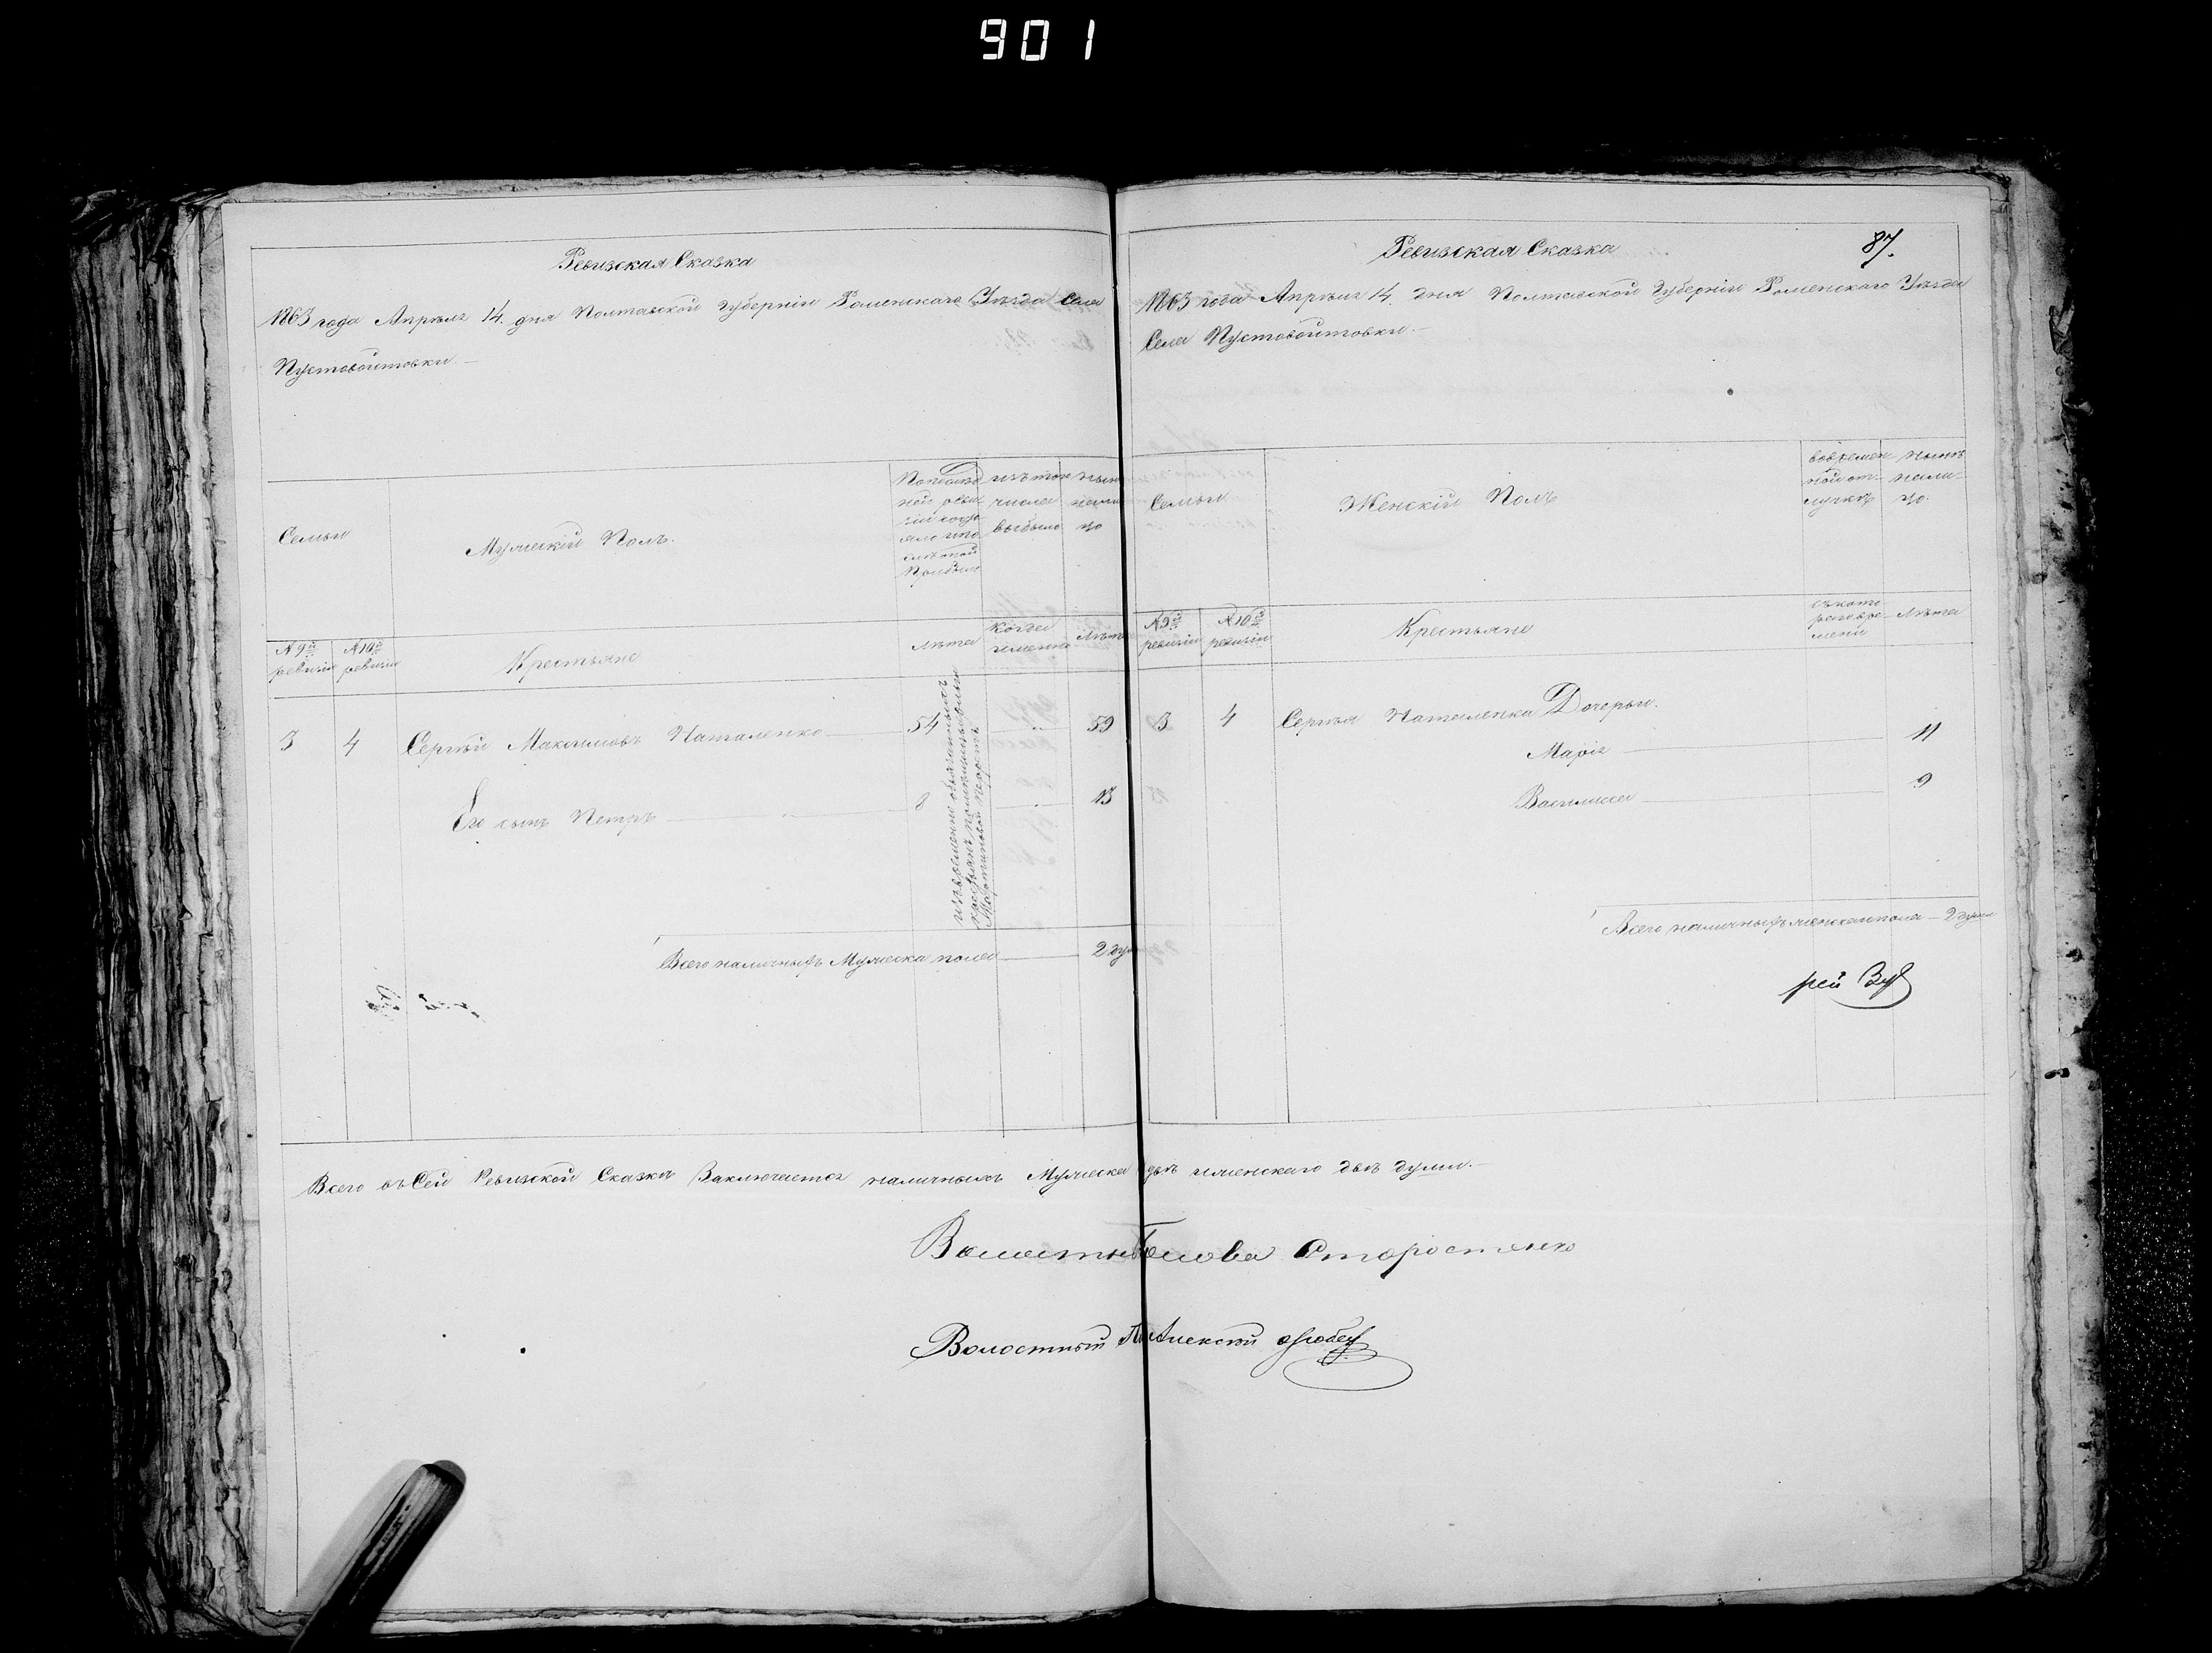 901
Ревизская Сказка
1863 года Апреля 14. дня Полтавской Губерніи Роменскаго Уезда Села
Пустовойтовки.—
Семьи
Мужескій Полъ.
По послед
ней реви
зіи состо
яло и по
сле той
Прибыло
изъ того
числа
выбыло
ныне
на ли
цо
№ 9й
ревизіи
№ 10й
ревизіи
Крестьяне
Лета
Когда
именно
Лета
3 4 Сергей Максимовъ Паталенко — 54 „ 59
Его сынъ Петръ — 8 „ 13
изъ временно обязанныхъ
крестьянъ помещицы
Всего наличныхъ Мужеска пола — 2 ду
Ревизская Сказка
87.
1863 года Апреля 14. дня Полтавской Губерніи Роменскаго Уезда
Села Пустовойтовки.—
Семьи
Женскій Полъ
во времен
ной от-
лучке
ныне
нали-
цо.
№ 9й
ревизіи
№ 10й
ревизіи
Крестьяне
съ кото
раго вре
мени
Лета
3 4 Сергея Паталенка Дочери.
Марія — 11
Василиса — 9
Всего наличныхъ женска пола — 2 души
рей Зуб
Всего въ Сей Ревизской Сказке Заключается наличныхъ Мужеска две и женскаго две души.—
Волостн Голова Старостенко
Волостный Пи Алексей